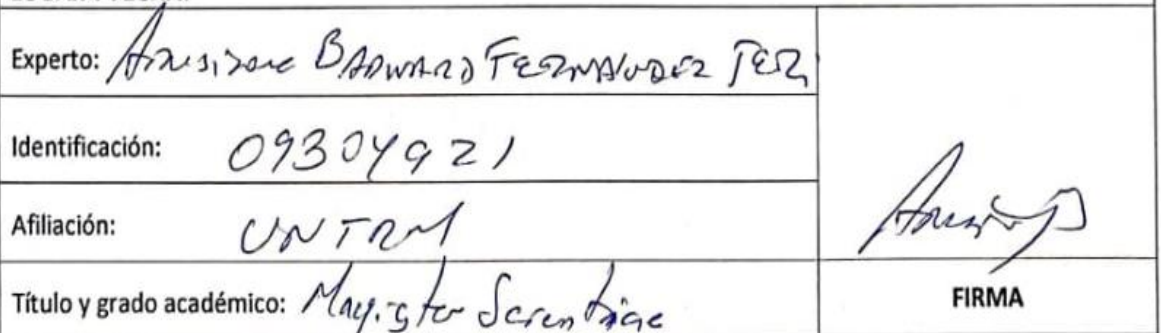 Experto: BADWARD FERNANDEZ
Identificación: 09304921
Afiliación: UNTRM
Título y grado académico: Magister Scientiae
FIRMA